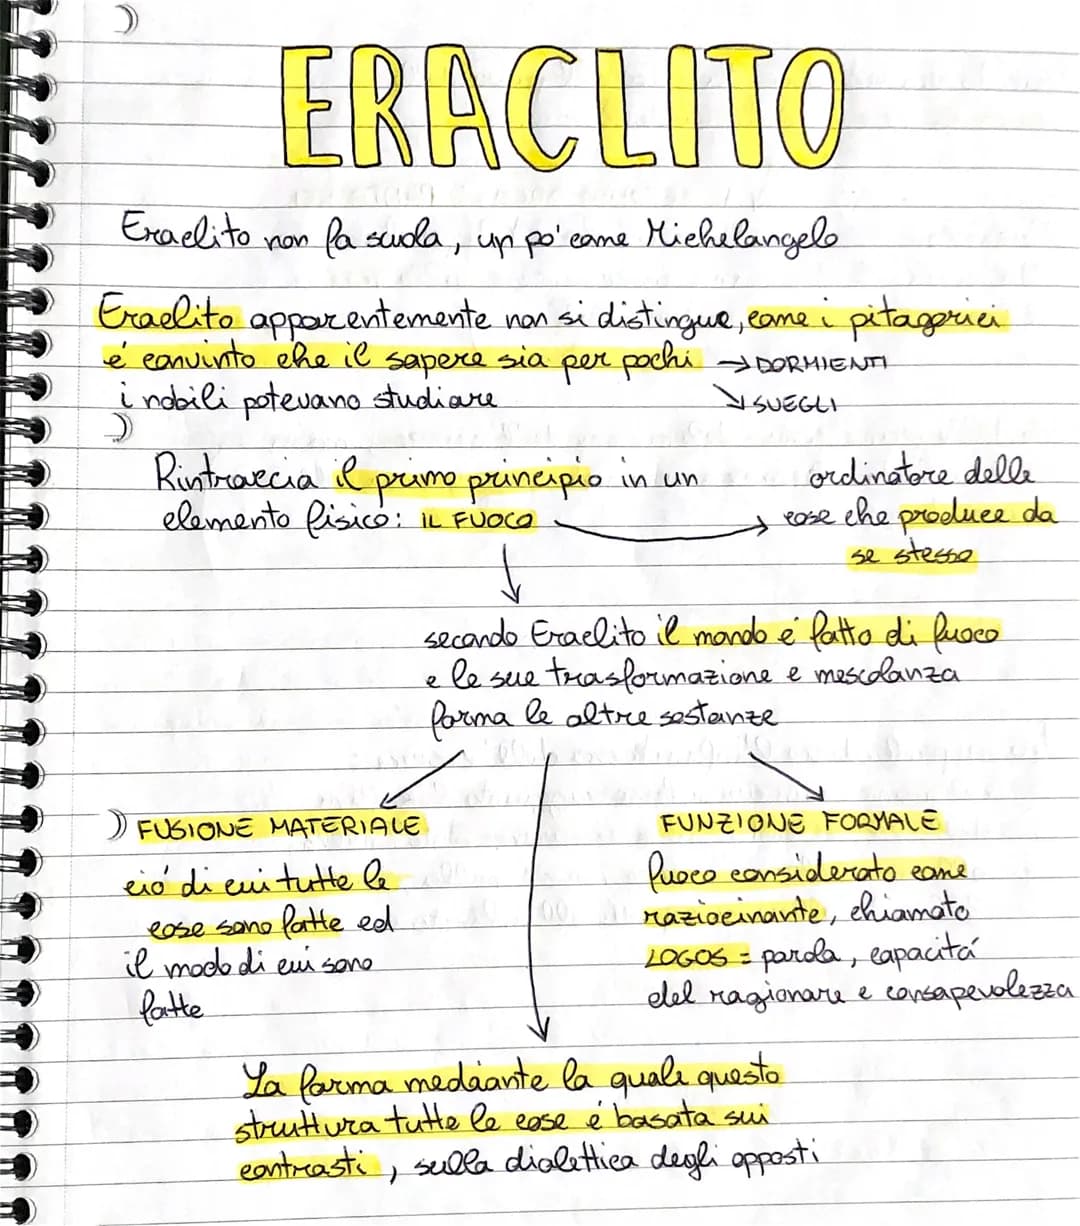 ERACLITO
Eraclito non fa scuola, un po' come Michelangelo
Eraclito apparentemente non si distingue, come i pitagorici
é convinto che il sapere sia per pochi → DORMIENTI
i nobili potevano studiare ↘ SVEGLI
Rintraccia il primo principio in un
elemento fisico: IL FUOCO
ordinatore delle
cose che produce da
se stesso
secondo Eraclito il mondo é fatto di fuoco
e le sue trasformazione e mescolanza
forma le altre sostanze
FUSIONE MATERIALE
ció di cui tutte le
cose sono fatte ed
il modo di cui sono
fatte
FUNZIONE FORMALE
fuoco considerato come
raziocinante, chiamato
LOGOS = parola, capacitá
del ragionare e consapevolezza
La forma mediante la quale questo
struttura tutte le cose é basata sui
contrasti, sulla dialettica degli opposti